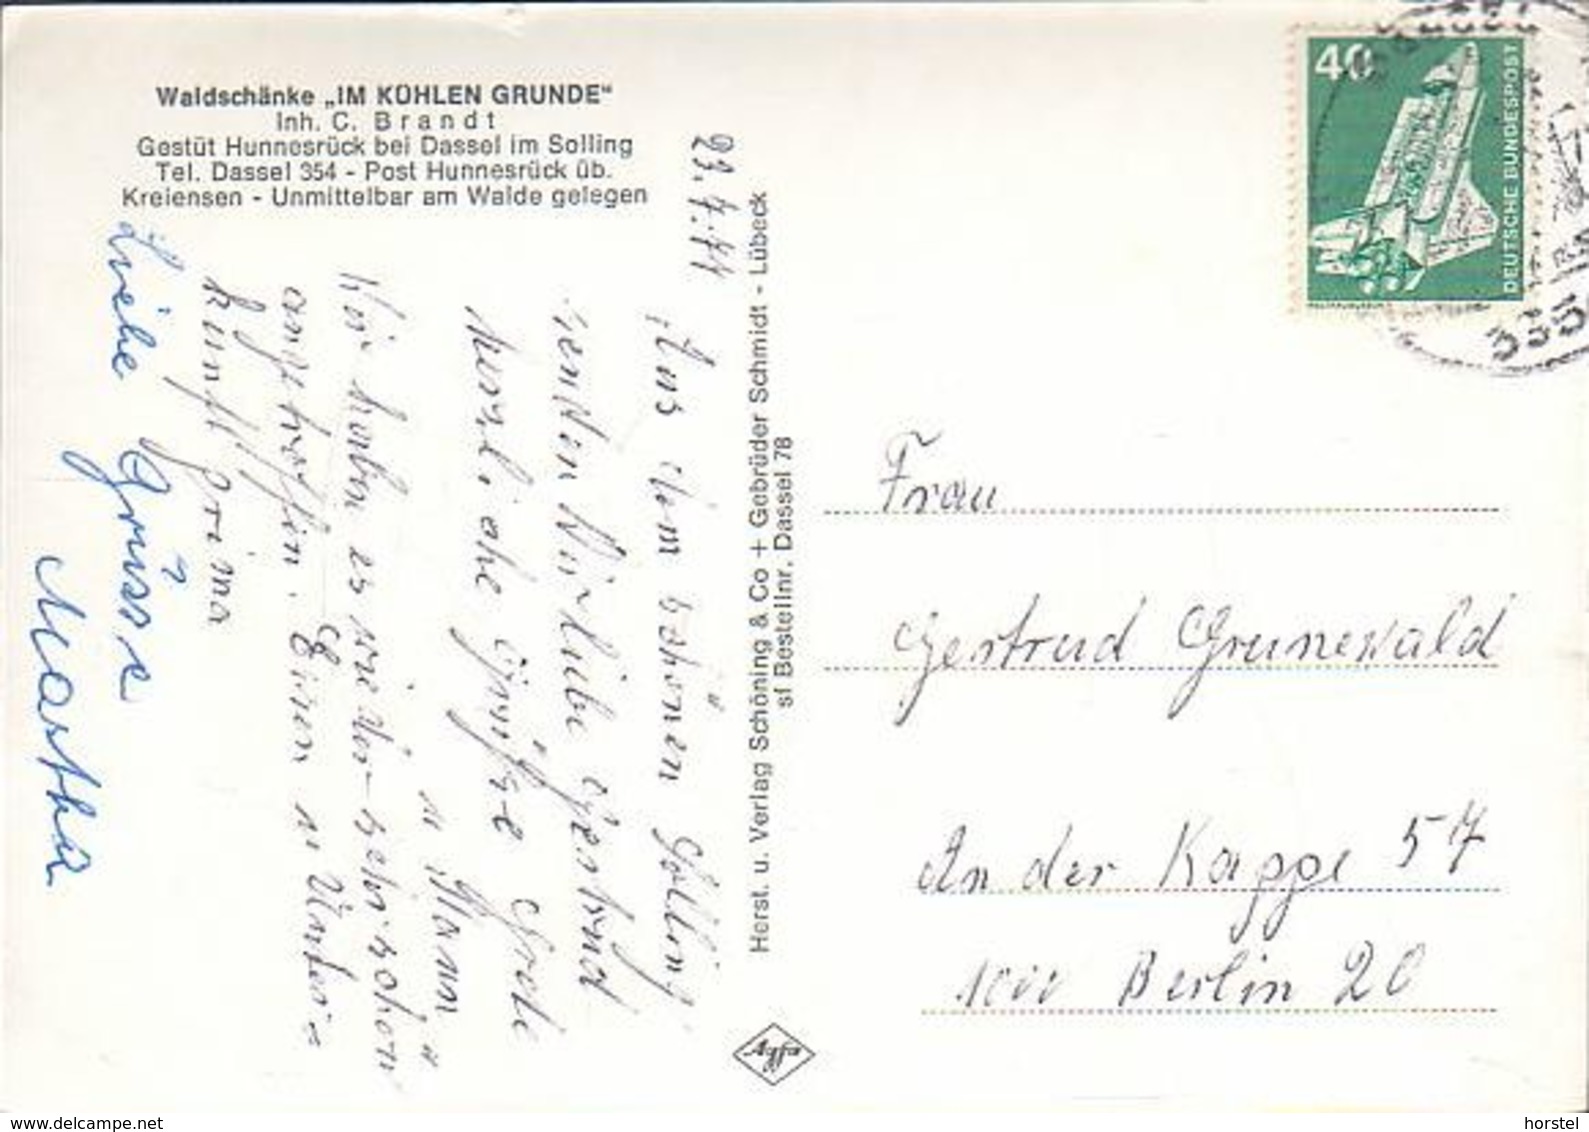 Waldschänke „IM KÜHLEN GRUNDE“
Inh. C. Brandt
Gestüt Hunnesrück bei Dassel im Solling
Tel. Dassel 354 - Post Hunnesrück üb.
Kreiensen - Unmittelbar am Walde gelegen
Aus dem schönen Solling
senden Wir liebe Gertrud
herzliche Grüße
u. Mann
Wir haben es wieder sehr schön
angetroffen. Essen u Unter=
kunft prima
Liebe Grüsse
Martha
Herst. u. Verlag Schöning & Co + Gebrüder Schmidt - Lübeck
sf Bestellnr. Dassel 78
Agfa
40
DEUTSCHE BUNDESPOST
Frau
Gertrud Grunewald
An der Kappe 57
1000 Berlin 20
www.delcampe.net
horstel